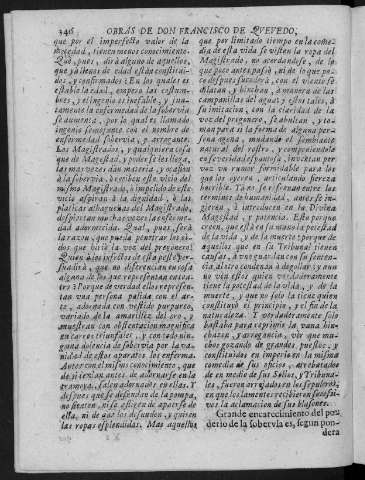 346 OBRAS DE DON FRANCISCO DE QVEVEDO,
que por el imperfecto valor de la
mocedad, tienen menos conocimiento.
Què, pues, dirà alguno de aquellos,
que ya llenos de edad estàn constitui-
dos, y confirmados? En los quales es
estable la edad, empero las costum-
bres, y el ingenio
la enfermedad de la sobervia
se aumenta, por lo qual es llamado
ingenio semejante con el nombre de
enfermedad sobervia, y arrogante.
Los Magistrados, y qualquiera cosa
que de Magestad, y poder se les llega,
las mas vezes dàn materia, y ocasion
à la sobervia. Y
mismo Magistrado,
vicio aspiran à la dignidad, à las
platicas del Magistrado,
despiertan muchas vezes la enferme-
dad adormecida. Qual, pues, serà
la razon, que pueda penetrar los oì-
dos que hiriò la voz del pregonero?
Quien à los infectos de esta peste per-
suadirà, que no se diferencian en cosa
alguna de los que representan en tea-
tro? Porque de verdad ellos represen-
tan una persona pulida con el ar-
te, adornada con vestido purpureo,
variado de la amarillez del oro, y
muestran con obstentacion magnifica
en carros triunfales, y con todo nin-
guna dolencia de sobervia por la va-
nidad de estos aparatos los enferma.
Antes con el mismo conocimiento, que
de sì tenian antes de adornarse en la
tramoya, salen adornados en ellas. Y
despues que se descienden de la pompa,
no sienten, ni se afligen de apearse de
esta, ni de que los desnuden, y quiten
las ropas esplendidas. Mas aquellos
que por limitado tiempo en la come-
dia de esta vida se visten la ropa del
Magistrado, no acordandose, de lo
que poco antes passò, ni de lo que po-
co despues sucederà, con el viento se
dilatan, y hinchan, à manera de las
campanillas del agua; estos tales, à
su imitacion, con la claridad de la
voz del pregonero, se abultan, y to-
man para sì la forma de alguna per-
sona agena, mudando el semblante
natural del rostro, y componiendole
en severidad espantosa, inventan por
voz un rumor formidable para los
que los oyeren, articulando fiereza
horrible. Ya no se refrenan entre los
terminos de humanidad, antes se in-
gieren, è introducen en la Divina
Magestad, y potencia. Esto porque
creen, que està en su mano la potestad
de la vida, y de la muerte; porque de
aquellos que en su Tribunal tienen
causas, à unos guardan con su senten-
cia, à otros condenan à degollar; y aun
no vèn estos quien verdaderamente
tiene la potestad de la vida, y de la
muerte, y que no solo la tiene quien
constituyò el principio, y el fin de la
naturaleza. Y verdaderamente solo
bastaba para reprimir la vana hin-
chazon, y arrogancia, vèr que mu-
chos gozando de grandes puestos, y
constituidos en imperio en la misma
comedia de sus oficios, arrebatados
de en medio de sus Solios, y Tribuna-
les, fueron arrojados en los sepulcros,
en que los lamentos recibieron en sustitu-
cion la aclamacion de sus blasones.
Grande encarecimiento del po-
derio de la sobervia es, segun pon-
dera